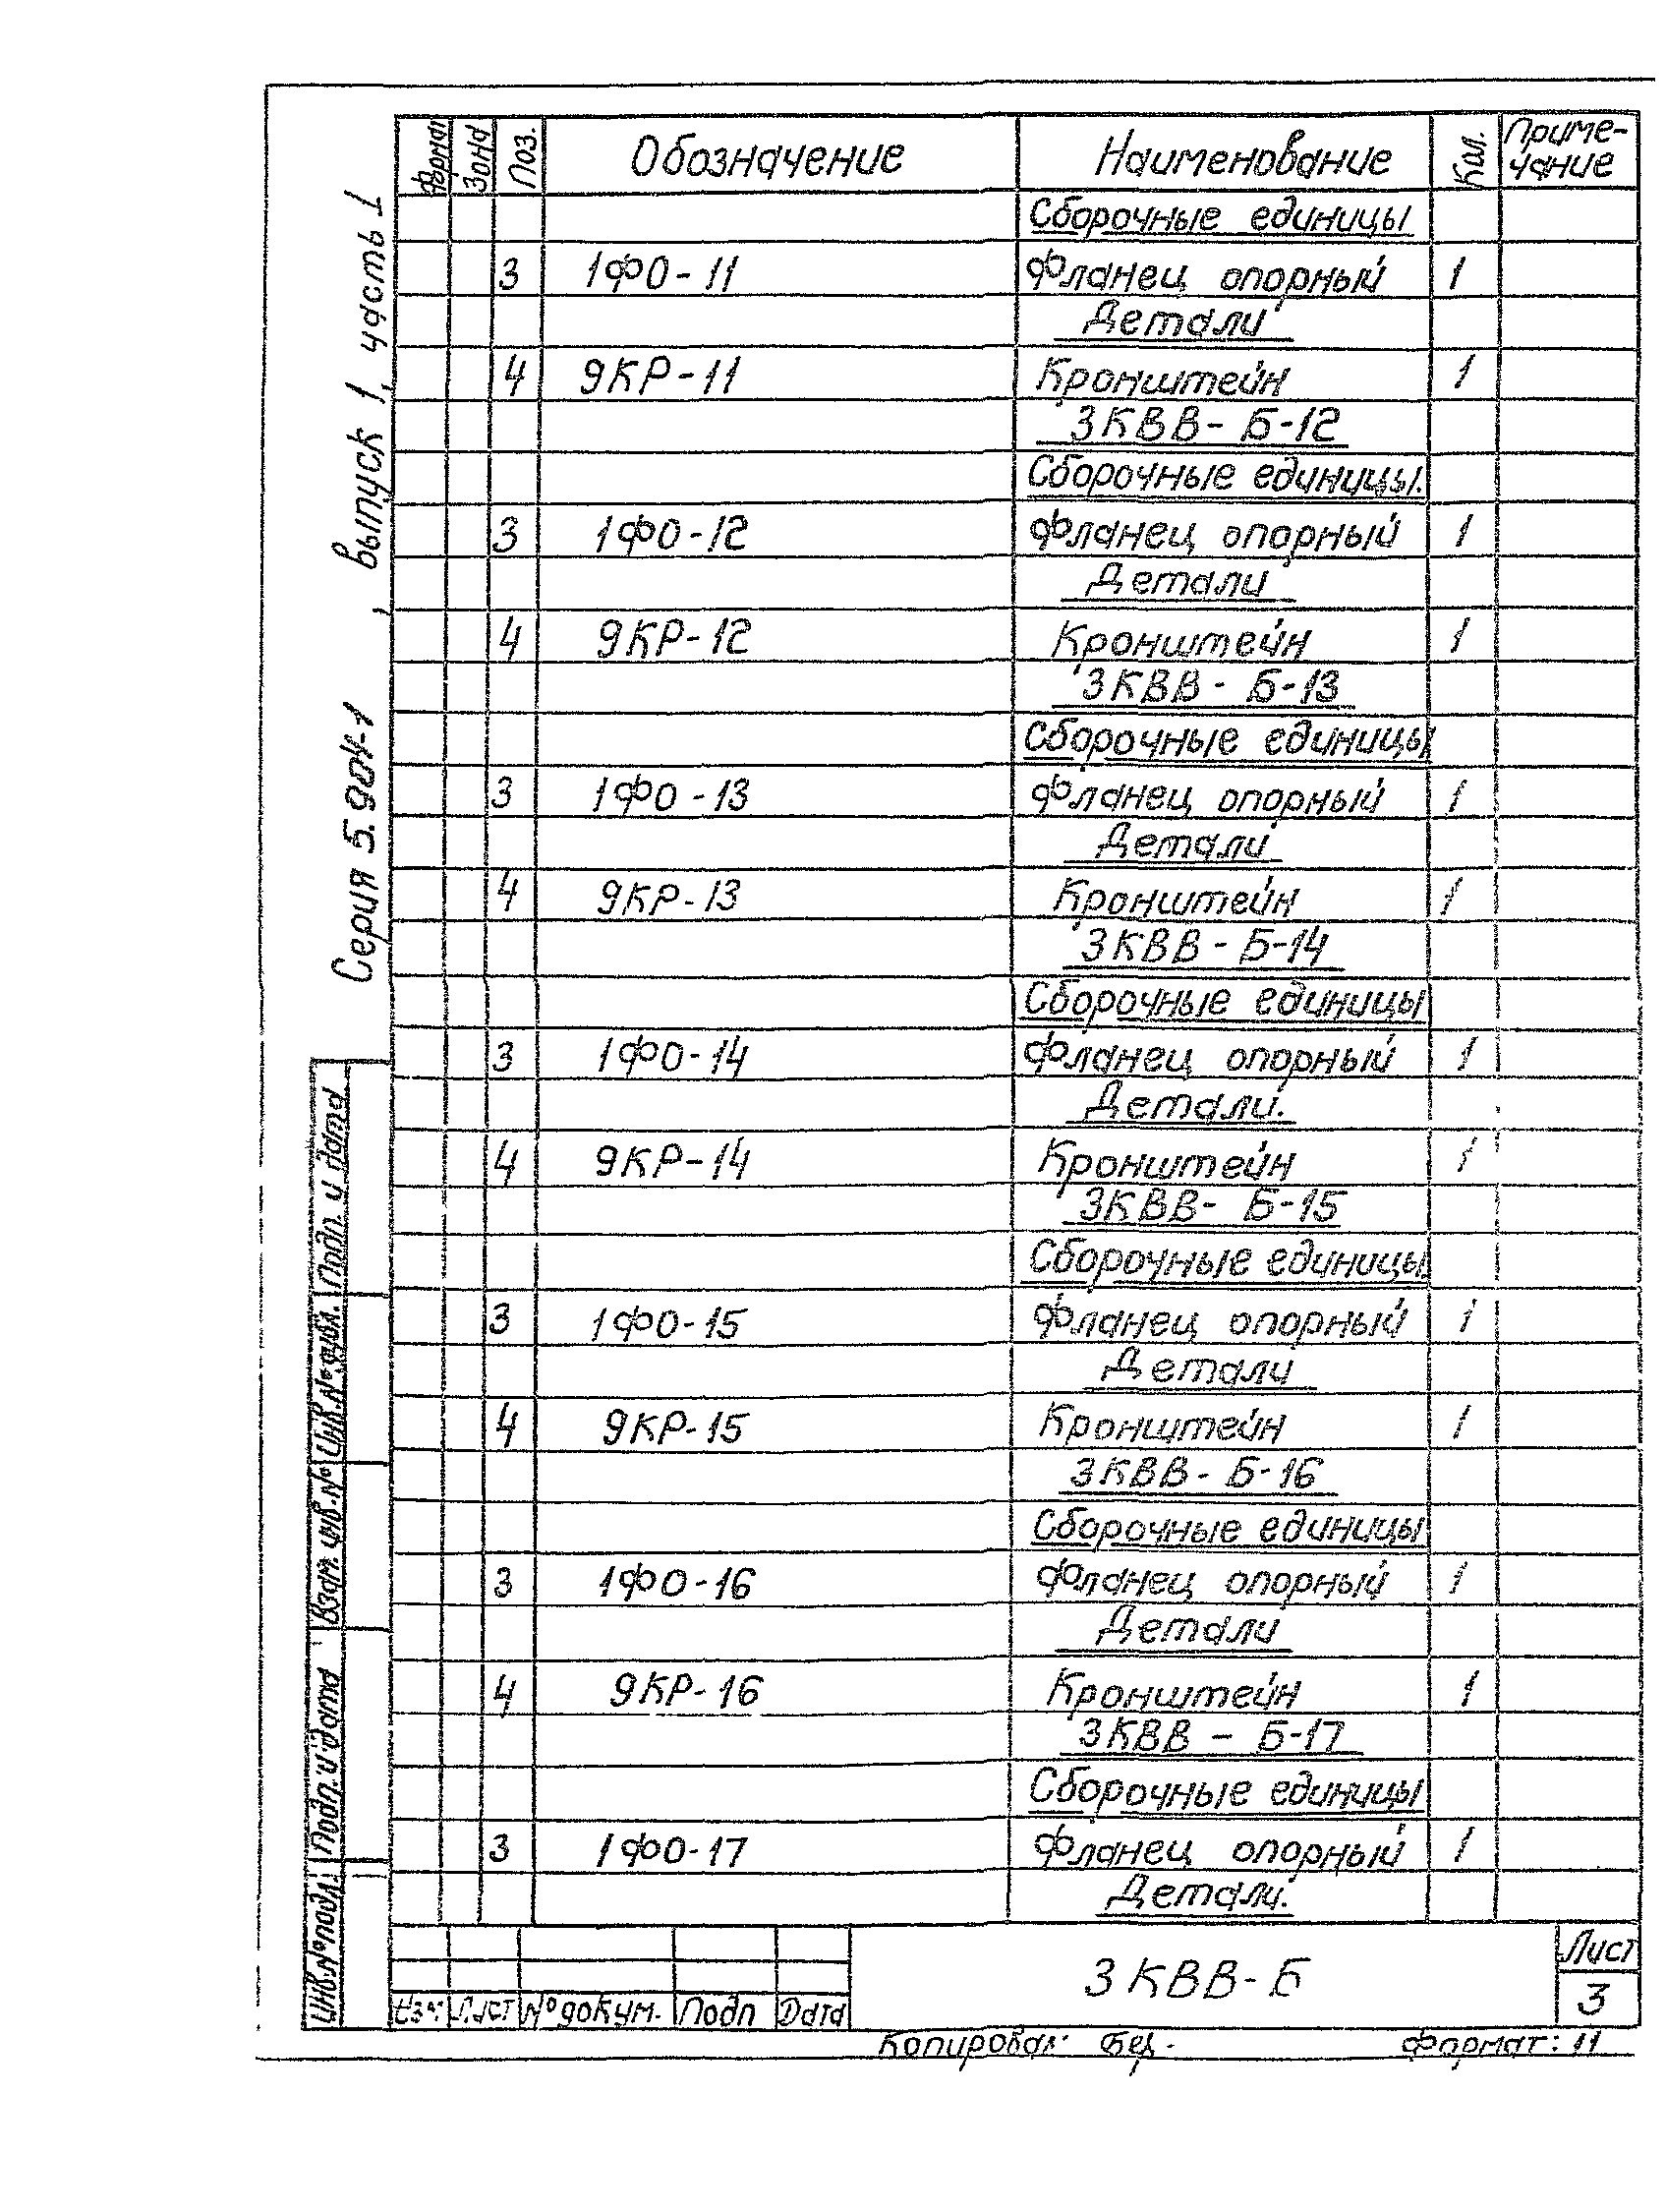 Формат Зона Поз. Обозначение Наименование Кол. Приме-
чание
Сборочные единицы
3 1ФО-11 Фланец опорный 1
Детали
4 9КР-11 Кронштейн 1
3КВВ-Б-12
Сборочные единицы.
3 1ФО-12 Фланец опорный 1
Детали
4 9КР-12 Кронштейн 1
3КВВ-Б-13
Сборочные единицы
3 1ФО-13 Фланец опорный 1
Детали
4 9КР-13 Кронштейн 1
3КВВ-Б-14
Сборочные единицы
3 1ФО-14 Фланец опорный 1
Детали.
4 9КР-14 Кронштейн 1
3КВВ-Б-15
Сборочные единицы
3 1ФО-15 Фланец опорный 1
Детали
4 9КР-15 Кронштейн 1
3КВВ-Б-16
Сборочные единицы
3 1ФО-16 Фланец опорный 1
Детали
4 9КР-16 Кронштейн 1
3КВВ-Б-17
Сборочные единицы
3 1ФО-17 Фланец опорный 1
Детали.
Серия 5.904-1 , выпуск 1, часть 1
Подп. и дата
Инв.№ дубл.
Взам. инв.№
Подп. и дата
Инв.№ подл.
Изм. Лист № докум. Подп Дата
3КВВ-Б
Лист
3
Копировал: Формат: 11